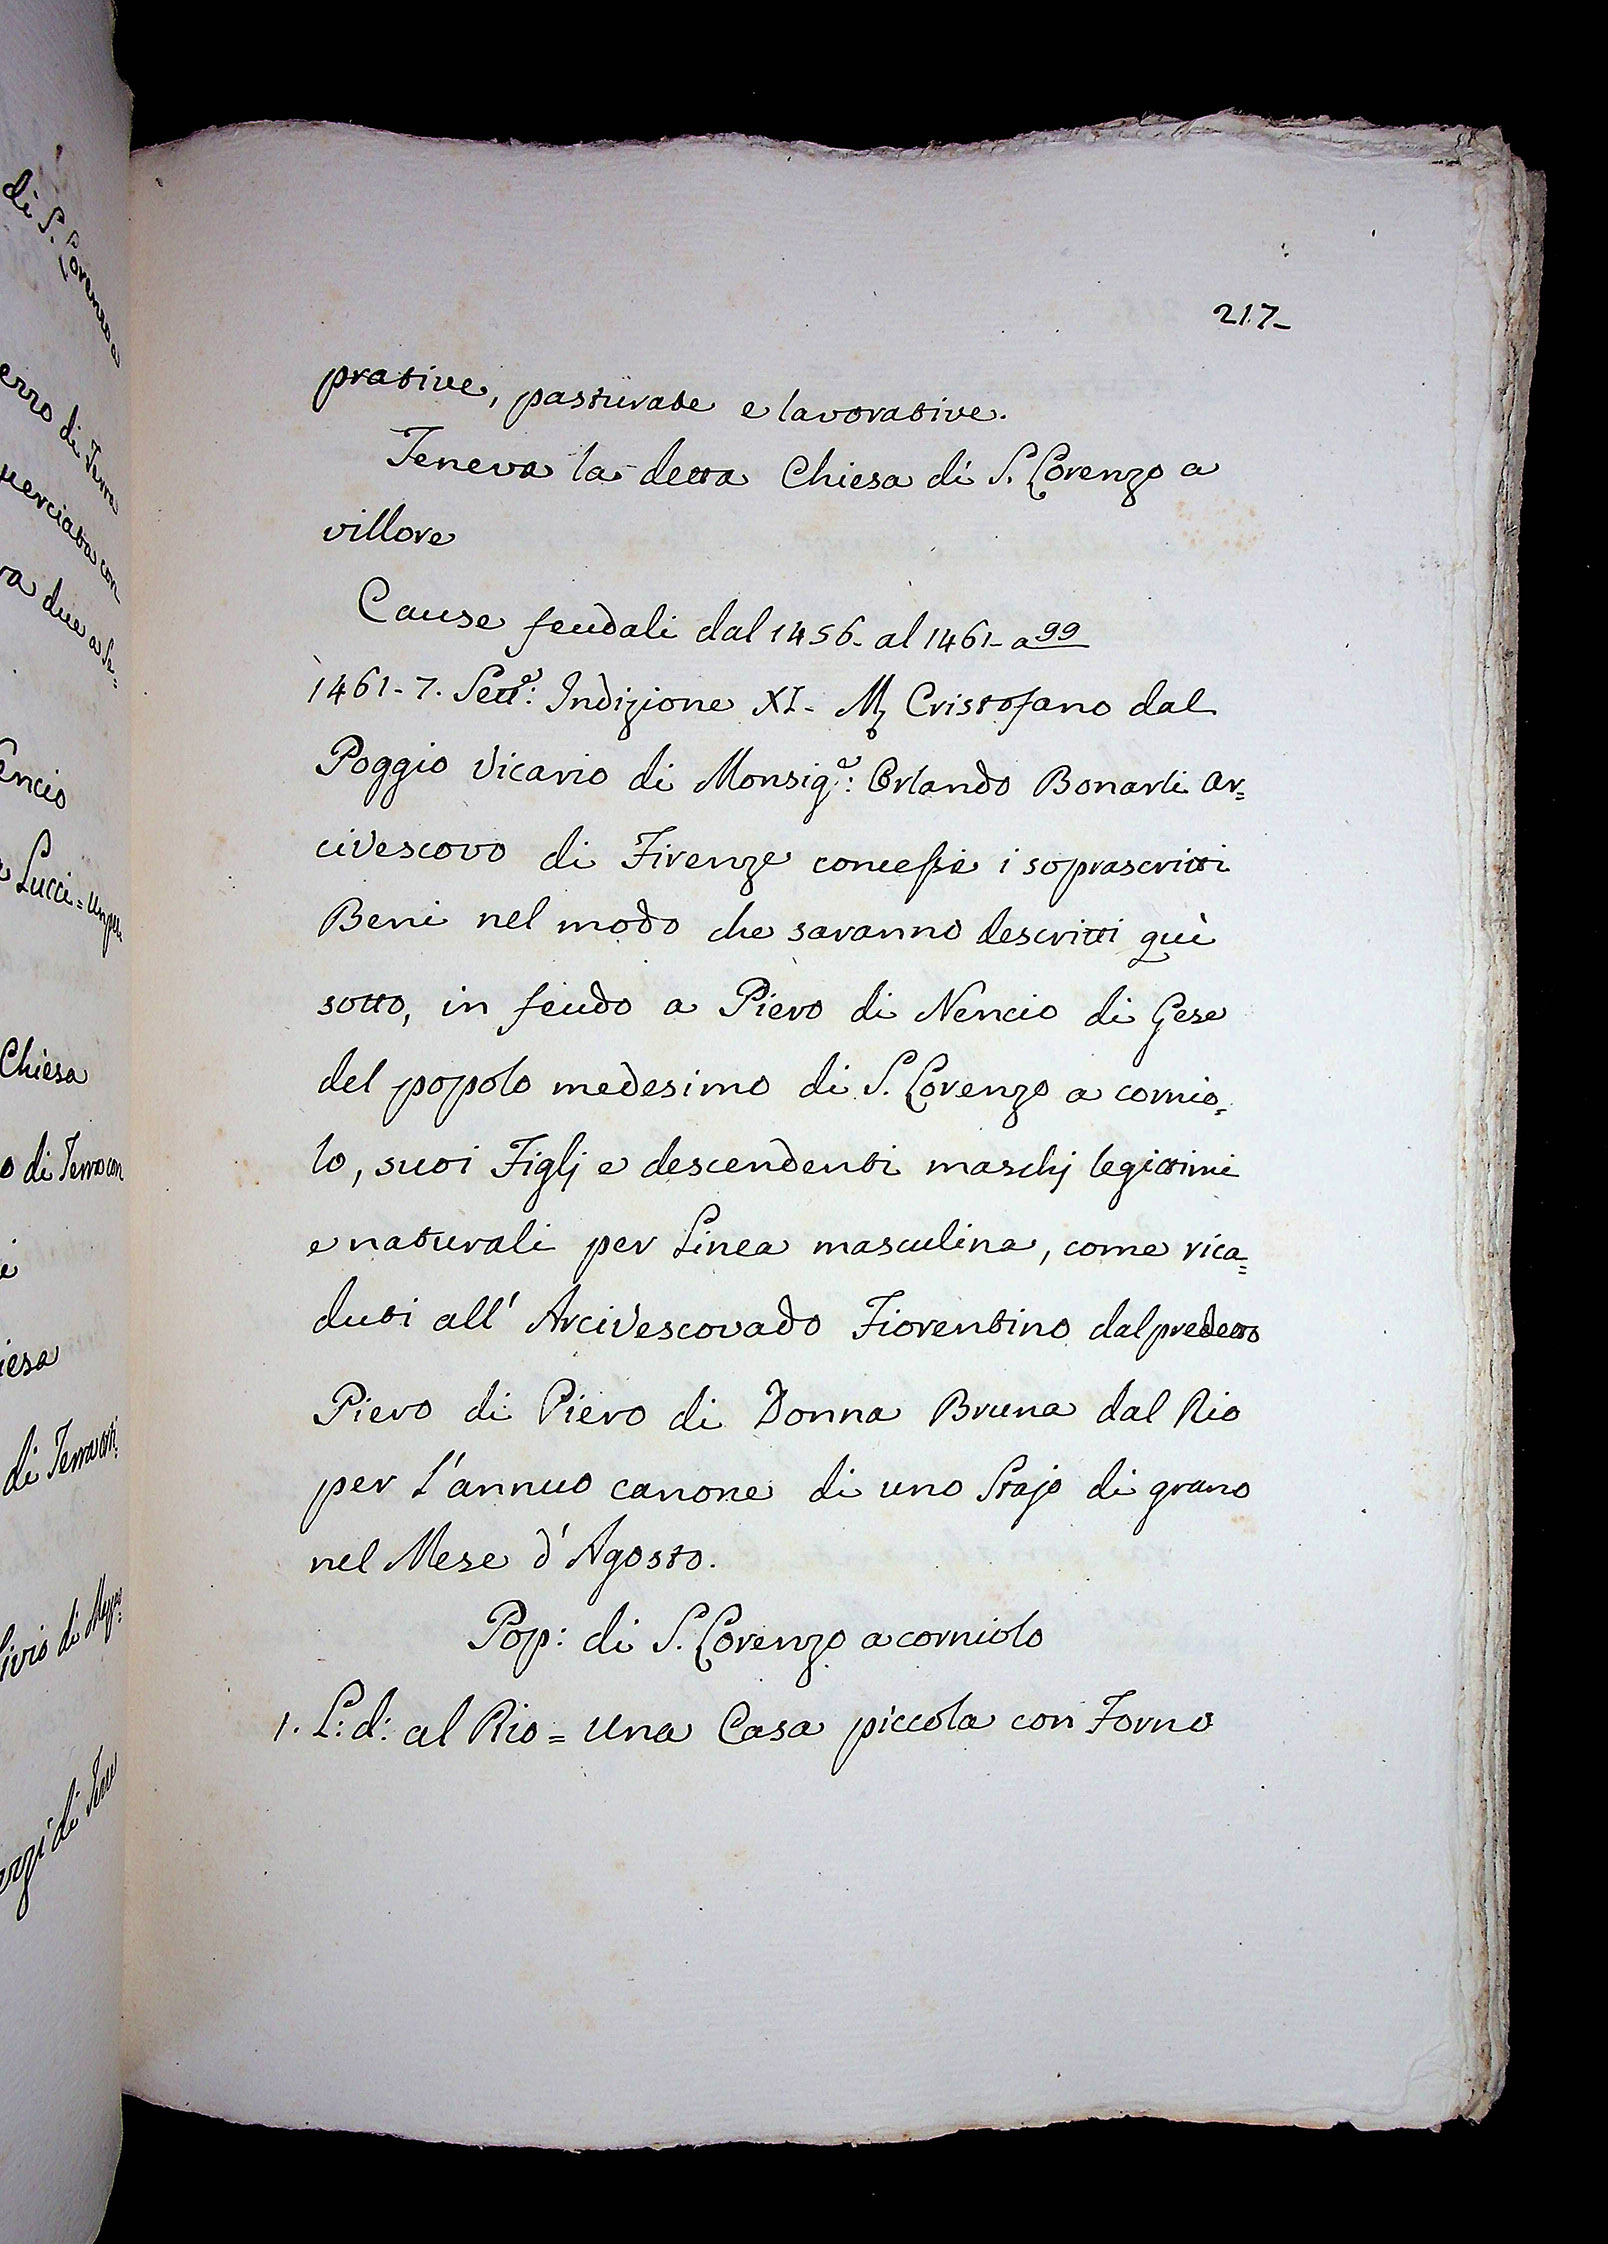 di S. Lorenzo
erro di Terra
uerciata con
ra due a Se=
encio
Lucci = un pez
Chiesa
o di Terra con
iesa
di Terra con
ivio di
di
217-
prative, pasturate e lavorative.
Teneva la detta Chiesa di S. Lorenzo a
villore
Cause feudali dal 1456- al 1461- a 99
1461-7. Sett.e: Indizione XI- M, Cristofano dal
Poggio Vicario di Monsig.e: Orlando Bonarli Ar=
civescovo di Firenze concesse i soprascritti
Beni nel modo che saranno descritti quì
sotto, in feudo a Piero di Nencio di Gese
del popolo medesimo di S. Lorenzo a cornio=
lo, suoi Figlj e descendenti maschj legittimi
e naturali per Linea masculina, come rica=
duti all' Arcivescovado Fiorentino dal predetto
Piero di Piero di Donna Bruna dal Rio
per l'annuo canone di uno Stajo di grano
nel Mese d'Agosto.
Pop: di S. Lorenzo a corniolo
1. L: d: al Rio = Una Casa piccola con Forno